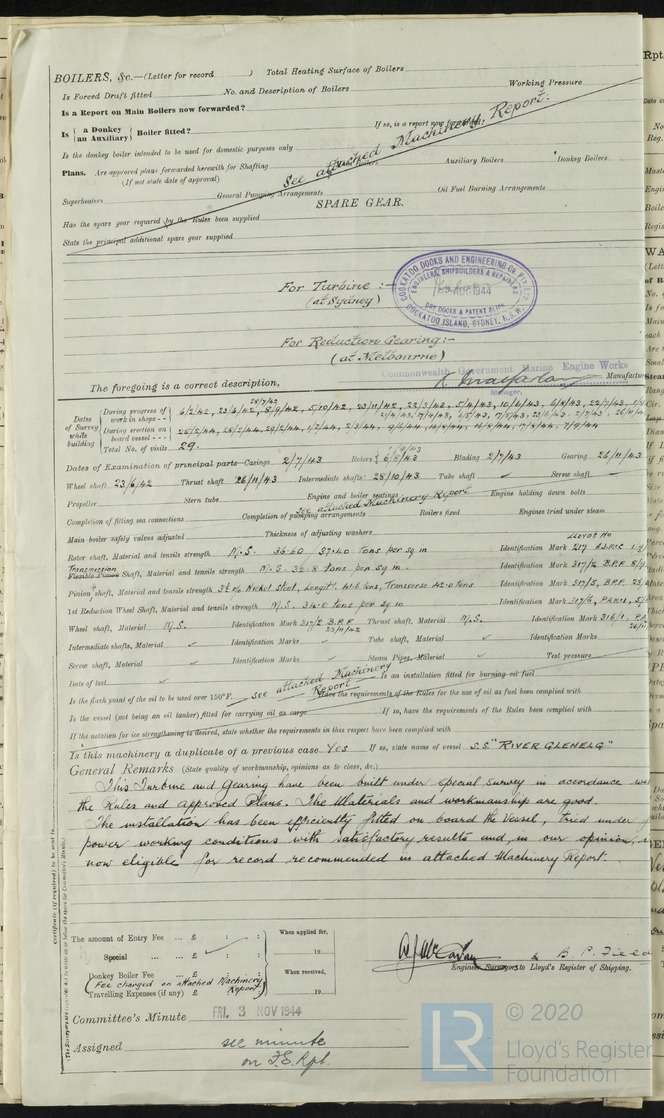 BOILERS, &c.—(Letter for record ) Total Heating Surface of Boilers
Is Forced Draft fitted No. and Description of Boilers Working Pressure
Is a Report on Main Boilers now forwarded?
Is { a Donkey / an Auxiliary } Boiler fitted? If so, is a report now forwarded?
Is the donkey boiler intended to be used for domestic purposes only
See attached Machinery Report.
Plans. Are approved plans forwarded herewith for Shafting Boilers Auxiliary Boilers Donkey Boilers
(If not state date of approval)
Superheaters General Pumping Arrangements Oil Fuel Burning Arrangements
SPARE GEAR.
Has the spare gear required by the Rules been supplied
State the principal additional spare gear supplied
COCKATOO DOCKS AND ENGINEERING CO. PTY. LTD.
ENGINEERS, SHIPBUILDERS & REPAIRERS
AUG 1944
DRY DOCKS & PATENT SLIPS
COCKATOO ISLAND, SYDNEY, N.S.W.
For Turbine :-
(at Sydney)
For Reduction Gearing:-
(at Melbourne)
Commonwealth Government Marine Engine Works
The foregoing is a correct description, Manager. Manufacturer
Dates of Survey while building
During progress of work in shops - - 6/2/42, 23/6/42, 28/7/42 8/9/42, 5/10/42, 23/11/42, 22/3/43, 5/4/43, 10/6/43, 6/8/43, 22/7/43,
During erection on board vessel - - - 25/2/44, 28/2/44, 29/2/44, 1/3/44, 2/3/44,
Total No. of visits 29.
Dates of Examination of principal parts—Casings 2/7/43 Rotors 6/8/43 Blading 2/7/43 Gearing 26/11/43
Wheel shaft 23/6/42 Thrust shaft 26/11/43 Intermediate shafts 28/10/43 Tube shaft ✓ Screw shaft ✓
Propeller Stern tube Engine and boiler seatings Engine holding down bolts
See attached Machinery Report
Completion of fitting sea connections Completion of pumping arrangements Boilers fixed Engines tried under steam
Main boiler safety valves adjusted Thickness of adjusting washers
Lloyds No
Rotor shaft, Material and tensile strength M.S. 36.60 37.40 Tons per sq in Identification Mark 217
Transmission
Flexible Pinion Shaft, Material and tensile strength M.S. 34.8 Tons per sq in. Identification Mark 317/2 B.P.F
Pinion shaft, Material and tensile strength 3½% Nickel Steel, Longitl. 41.6 tons, Transverse 42.0 tons Identification Mark 317/5, B.P.F.
1st Reduction Wheel Shaft, Material and tensile strength M.S. 34.0 Tons per sq in Identification Mark 317/6,
Wheel shaft, Material M.S. Identification Mark 317/2 B.P.F 23/11/42 Thrust shaft, Material M.S. Identification Mark 316/1
Intermediate shafts, Material ✓ Identification Marks ✓ Tube shaft, Material ✓ Identification Marks
Screw shaft, Material ✓ Identification Marks ✓ Steam Pipes, Material ✓ Test pressure
Date of test ✓ Is an installation fitted for burning oil fuel
See attached Machinery Report
Is the flash point of the oil to be used over 150°F. Have the requirements of the Rules for the use of oil as fuel been complied with
Is the vessel (not being an oil tanker) fitted for carrying oil as cargo If so, have the requirements of the Rules been complied with
If the notation for ice strengthening is desired, state whether the requirements in this respect have been complied with
Is this machinery a duplicate of a previous case Yes If so, state name of vessel S.S. "RIVER GLENELG"
General Remarks (State quality of workmanship, opinions as to class, &c.)
This Turbine and Gearing have been built under special survey in accordance
the Rules and approved Plans. The Materials and workmanship are good.
The installation has been efficiently fitted on board the Vessel, tried under
power working conditions with satisfactory results and, in our opinion,
now eligible for record recommended in attached Machinery Report.
Certificate (if required) to be sent to
(The Surveyors are requested not to write on or below the space for Committee's Minute.)
The amount of Entry Fee ... £ : : When applied for,
Special ... £ : : 19
Donkey Boiler Fee ... £ : : When received,
(Fee charged on attached Machinery Report)
Travelling Expenses (if any) £ : : 19
& B. P. Field
Engineer Surveyors to Lloyd's Register of Shipping.
Committee's Minute FRI. 3 NOV 1944
Assigned see minute
on F.E. Rpt.
LR
© 2020
Lloyd's Register
Foundation